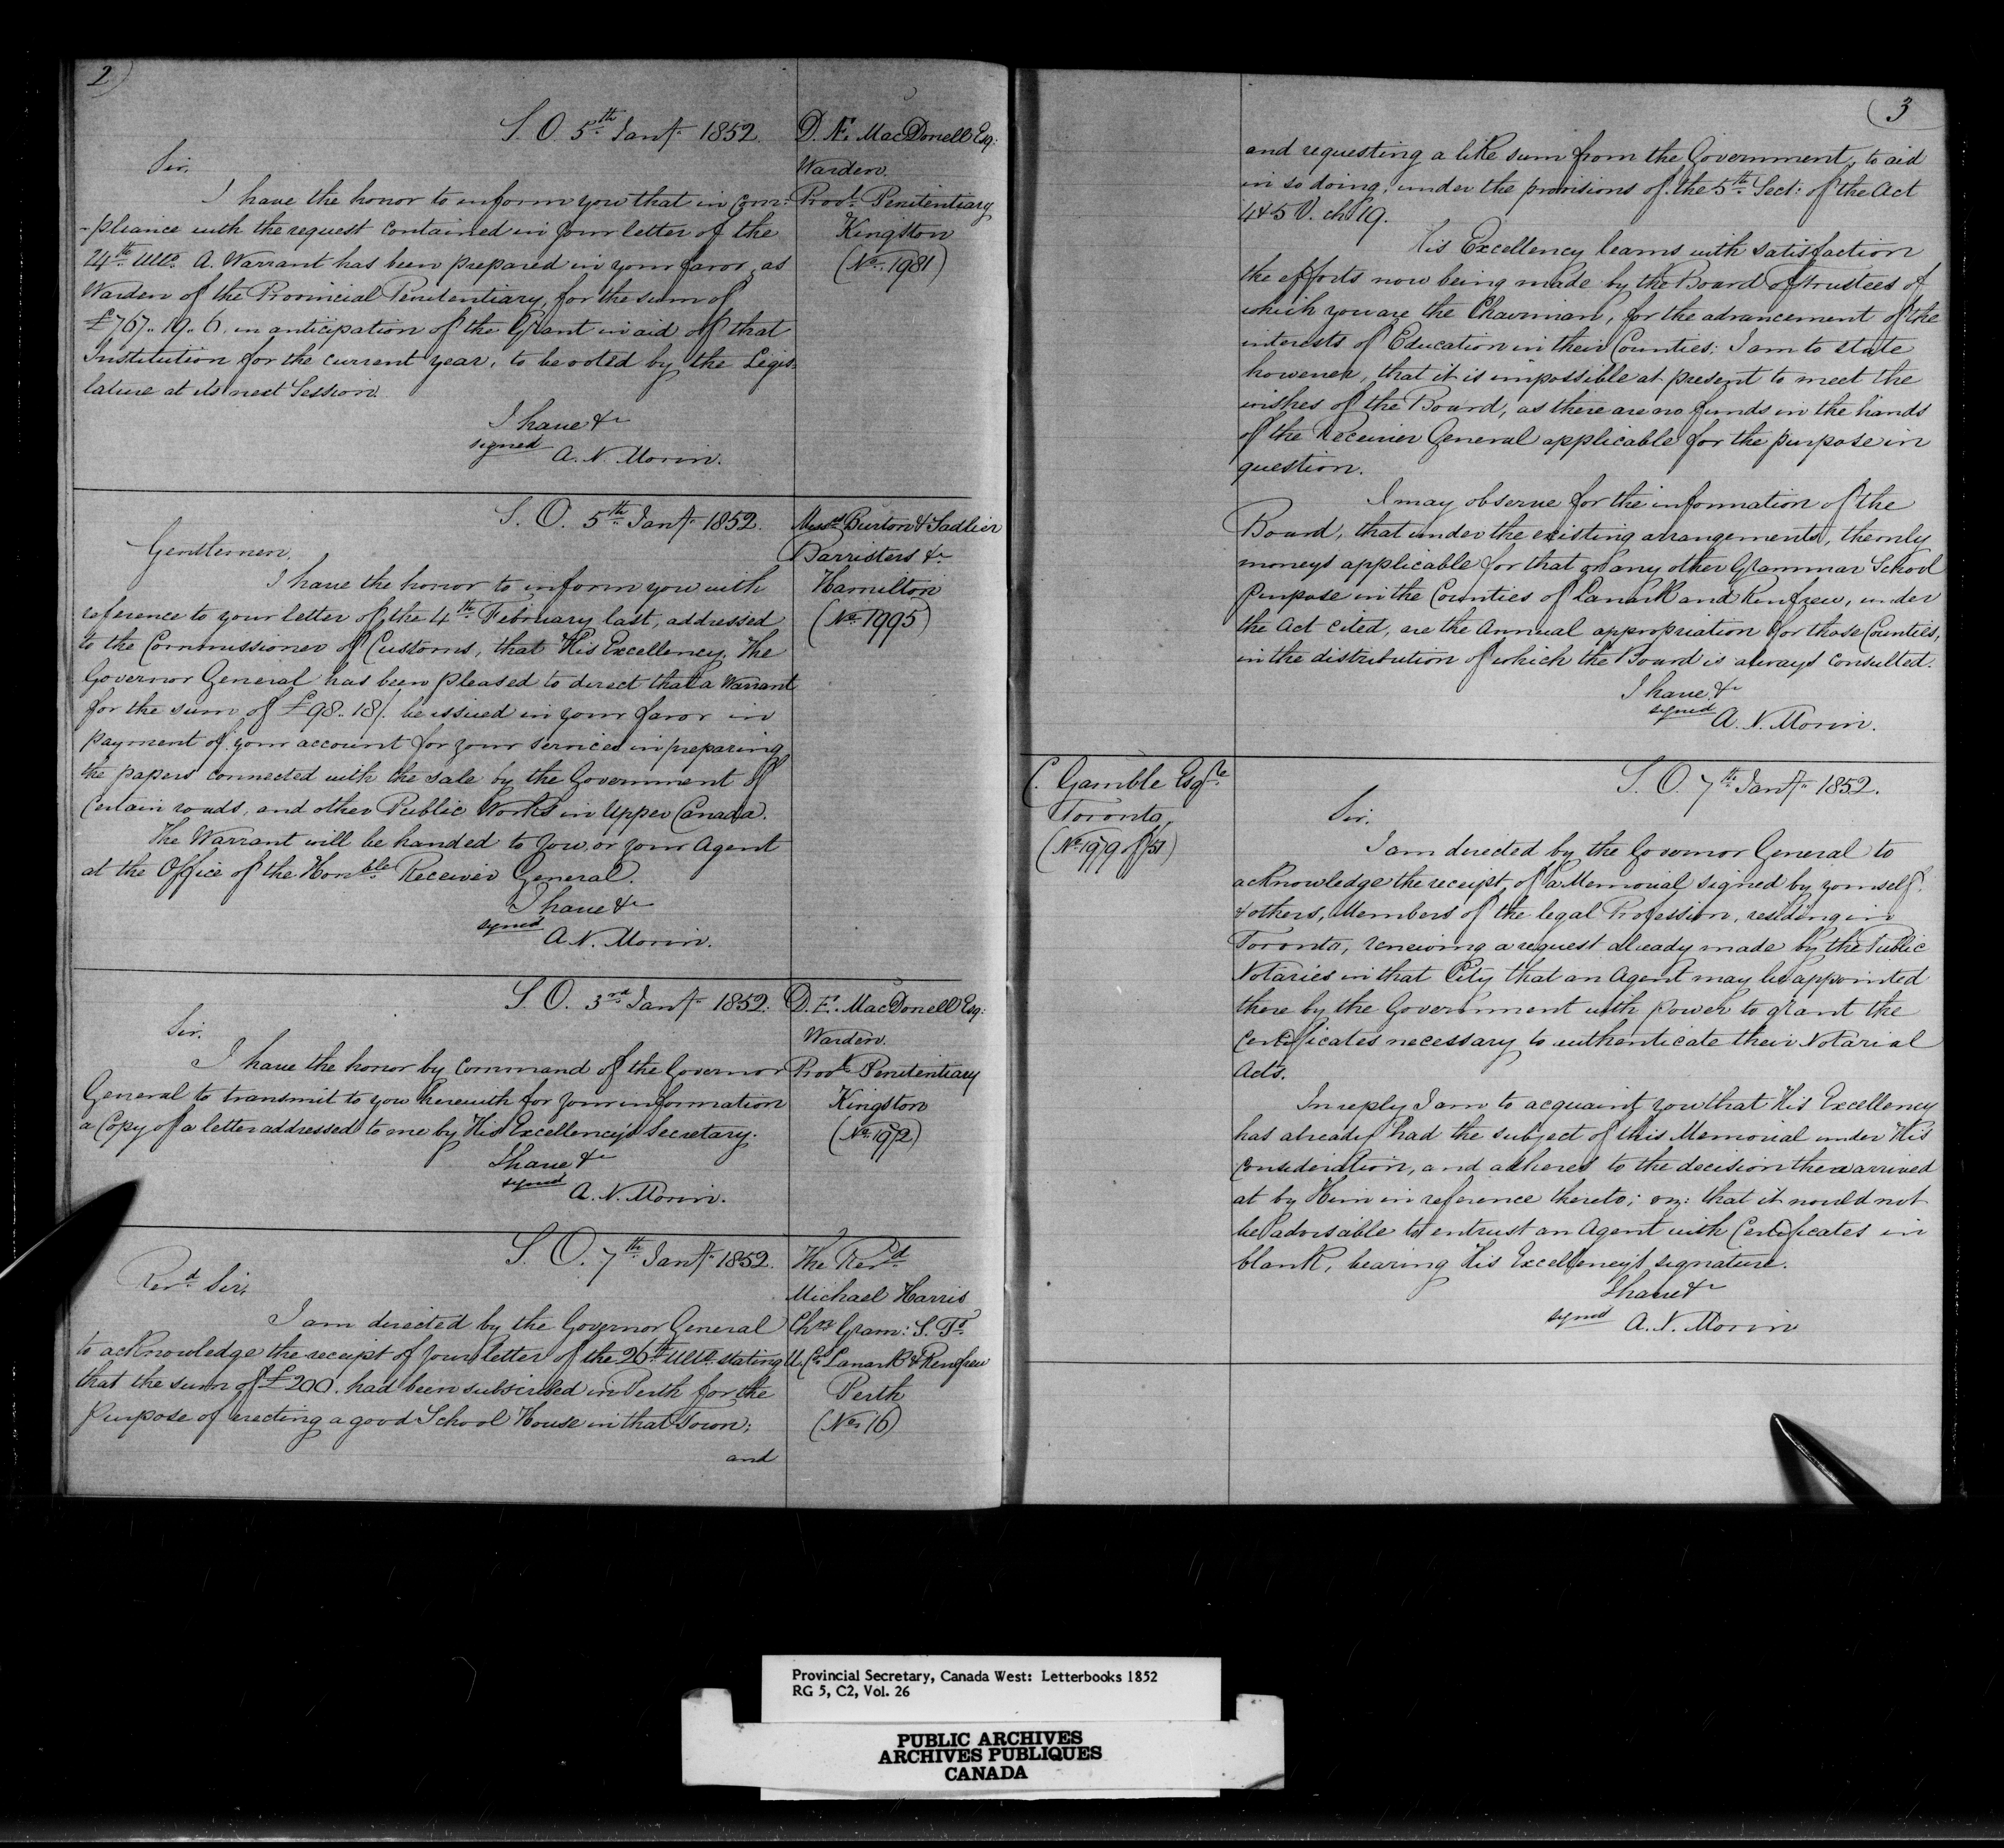 2)
S. O. 5th Jany 1852.
D. Æ. MacDonell Esq:
Warden
Provl Penitentiary
Kingston
(No. 1981)
Sir,
I have the honor to inform you that in com-
-pliance with the request contained in your letter of the
24th Ulto. A. Warrant has been prepared in your favor, as
Warden of the Provincial Penitentiary, for the sum of
£767.. 19.. 6. in anticipation of the Grant in aid of that
Institution for the current year, to be voted by the Legis-
lature at its next Session.
I have &c
signed A. N. Morin.
S. O. 5th Jany 1852.
Messrs Burton & Sadlier
Barristers &c
Hamilton
(No. 1995)
Gentlemen,
I have the honor to inform you with
reference to your letter of the 4th February last, addressed
to the Commissioner of Customs, that His Excellency. The
Governor General has been pleased to direct that a Warrant
for the sum of £98.. 18/. be issued in your favor in
payment of your account for your services in preparing
the papers connected with the sale by the Government of
Certain roads, and other Public Works in Upper Canada.
The Warrant will be handed to you, or your Agent
at the Office of the Honble Receiver General.
I have &c
signed A. N. Morin.
S. O. 3rd Jany 1852.
D. Æ. MacDonell Esq:
Warden.
Provl Penitentiary
Kingston
(No. 1972)
Sir.
I have the honor by Command of the Governor
General to transmit to you herewith for your information
a Copy of a letter addressed to me by His Excellency's Secretary.
I have &c
signed A. N. Morin.
S. O. 7th Jany 1852.
The Revd
Michael Harris
Chn Gram: S. Ts
U. Cs Lanark & Renfrew
Perth
(No. 16)
Revd Sir,
I am directed by the Governor General
to acknowledge the receipt of your letter of the 26th Ulto. stating
that the sum of £200. had been subscribed in Perth for the
purpose of erecting a good School House in that Town;
and
3
and requesting a like sum from the Government, to aid
in so doing, under the provisions of the 5th Sect: of the Act
4 & 5 V. ch 19.
His Excellency learns with satisfaction
the efforts now being made by the Board of Trustees of
which you are the Chairman, for the advancement of the
interests of Education in their Counties; I am to state
however, that it is impossible at present to meet the
wishes of the Board, as there are no funds in the hands
of the Receiver General applicable for the purpose in
question.
I may observe for the information of the
Board, that under the existing arrangements, the only
moneys applicable for that or any other Grammar School
purpose in the Counties of Lanark and Renfrew, under
the Act cited, are the Annual appropriation for those Counties,
in the distribution of which the Board is always consulted.
I have &c
signed A. N. Morin.
C. Gamble Esqre
Toronto
(No. 1979 of /51)
S. O. 7th Jany 1852.
Sir.
I am directed by the Governor General to
acknowledge the receipt of a Memorial signed by yourself
& others, Members of the legal Profession, residing in
Toronto, renewing a request already made by the Public
Notaries in that City that an Agent may be appointed
there by the Government with power to grant the
Certificates necessary to authenticate their Notarial
Acts.
In reply I am to acquaint you that His Excellency
has already had the subject of this Memorial under His
Consideration, and adheres to the decision then arrived
at by Him in reference thereto; viz: that it would not
be advisable to entrust an Agent with Certificates in
blank, bearing His Excellency's signature.
I have &c
signed A. N. Morin
Provincial Secretary, Canada West: Letterbooks 1852
RG 5, C2, Vol. 26
PUBLIC ARCHIVES
ARCHIVES PUBLIQUES
CANADA